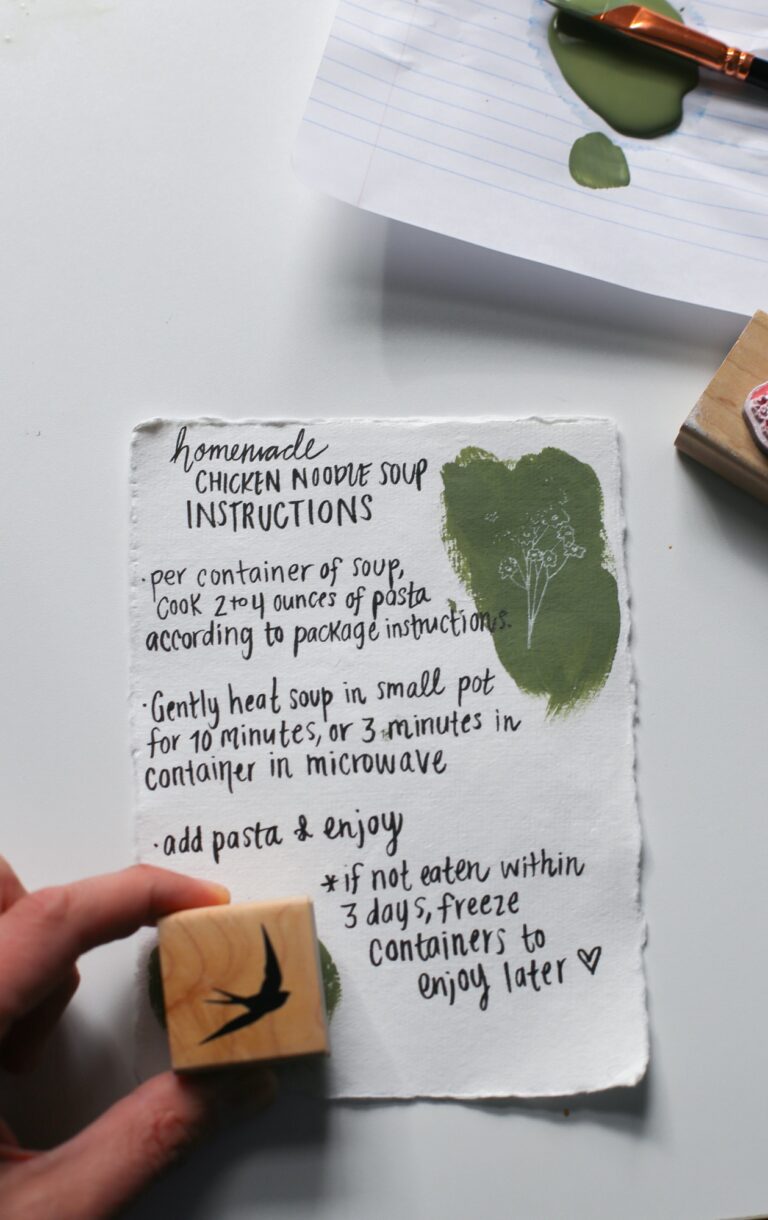 homemade
CHICKEN NOODLE SOUP
INSTRUCTIONS
·per container of soup,
cook 2 to 4 ounces of pasta
according to package instructions.
·Gently heat soup in small pot
for 10 minutes, or 3 minutes in
container in microwave
·add pasta & enjoy
*if not eaten within
3 days, freeze
containers to
enjoy later ♡